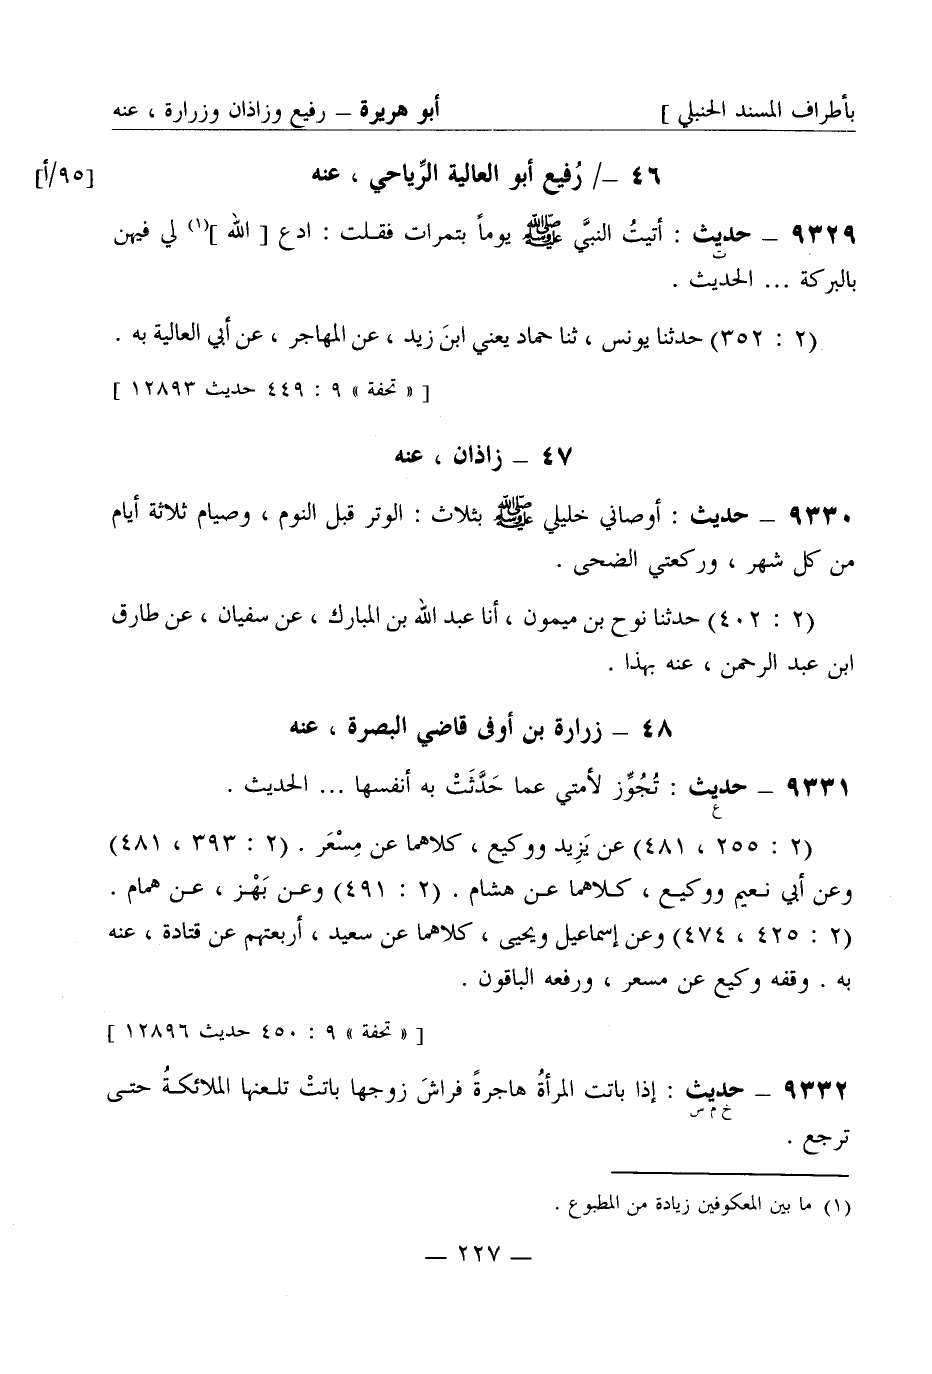 بأطراف المسند الحنبلي ] أبو هريرة ــ رفيع وزاذان وزرارة ، عنه
٤٦ ــ/ رُفيع أبو العالية الرِّياحي ، عنه [٩٥/أ]
٩٣٢٩ ــ حديث : أتيتُ النبيَّ ﷺ يوماً بتمرات فقلت : ادع [ الله ](١) لي فيهن
ت
بالبركة ... الحديث .
(٢ : ٣٥٢) حدثنا يونس ، ثنا حماد يعني ابنَ زيد ، عن المهاجر ، عن أبي العالية به .
[ « تحفة » ٩ : ٤٤٩ حديث ١٢٨٩٣ ]
٤٧ ــ زاذان ، عنه
٩٣٣٠ ــ حديث : أوصاني خليلي ﷺ بثلاث : الوتر قبل النوم ، وصيام ثلاثة أيام
من كل شهر ، وركعتي الضحى .
(٢ : ٤٠٢) حدثنا نوح بن ميمون ، أنا عبد الله بن المبارك ، عن سفيان ، عن طارق
ابن عبد الرحمن ، عنه بهذا .
٤٨ ــ زرارة بن أوفى قاضي البصرة ، عنه
٩٣٣١ ــ حديث : تُجُوِّز لأمتي عما حَدَّثَتْ به أنفسها ... الحديث .
ع
(٢ : ٢٥٥ ، ٤٨١) عن يَزِيد ووكيع ، كلاهما عن مِسْعَر . (٢ : ٣٩٣ ، ٤٨١)
وعن أبي نعيم ووكيع ، كلاهما عن هشام . (٢ : ٤٩١) وعن بَهْز ، عن همام .
(٢ : ٤٢٥ ، ٤٧٤) وعن إسماعيل ويحيى ، كلاهما عن سعيد ، أربعتهم عن قتادة ، عنه
به . وقفه وكيع عن مسعر ، ورفعه الباقون .
[ « تحفة » ٩ : ٤٥٠ حديث ١٢٨٩٦ ]
٩٣٣٢ ــ حديث : إذا باتت المرأةُ هاجرةً فراشَ زوجها باتتْ تلعنها الملائكةُ حتى
خ م س
ترجع .
(١) ما بين المعكوفين زيادة من المطبوع .
ــ ٢٢٧ ــ